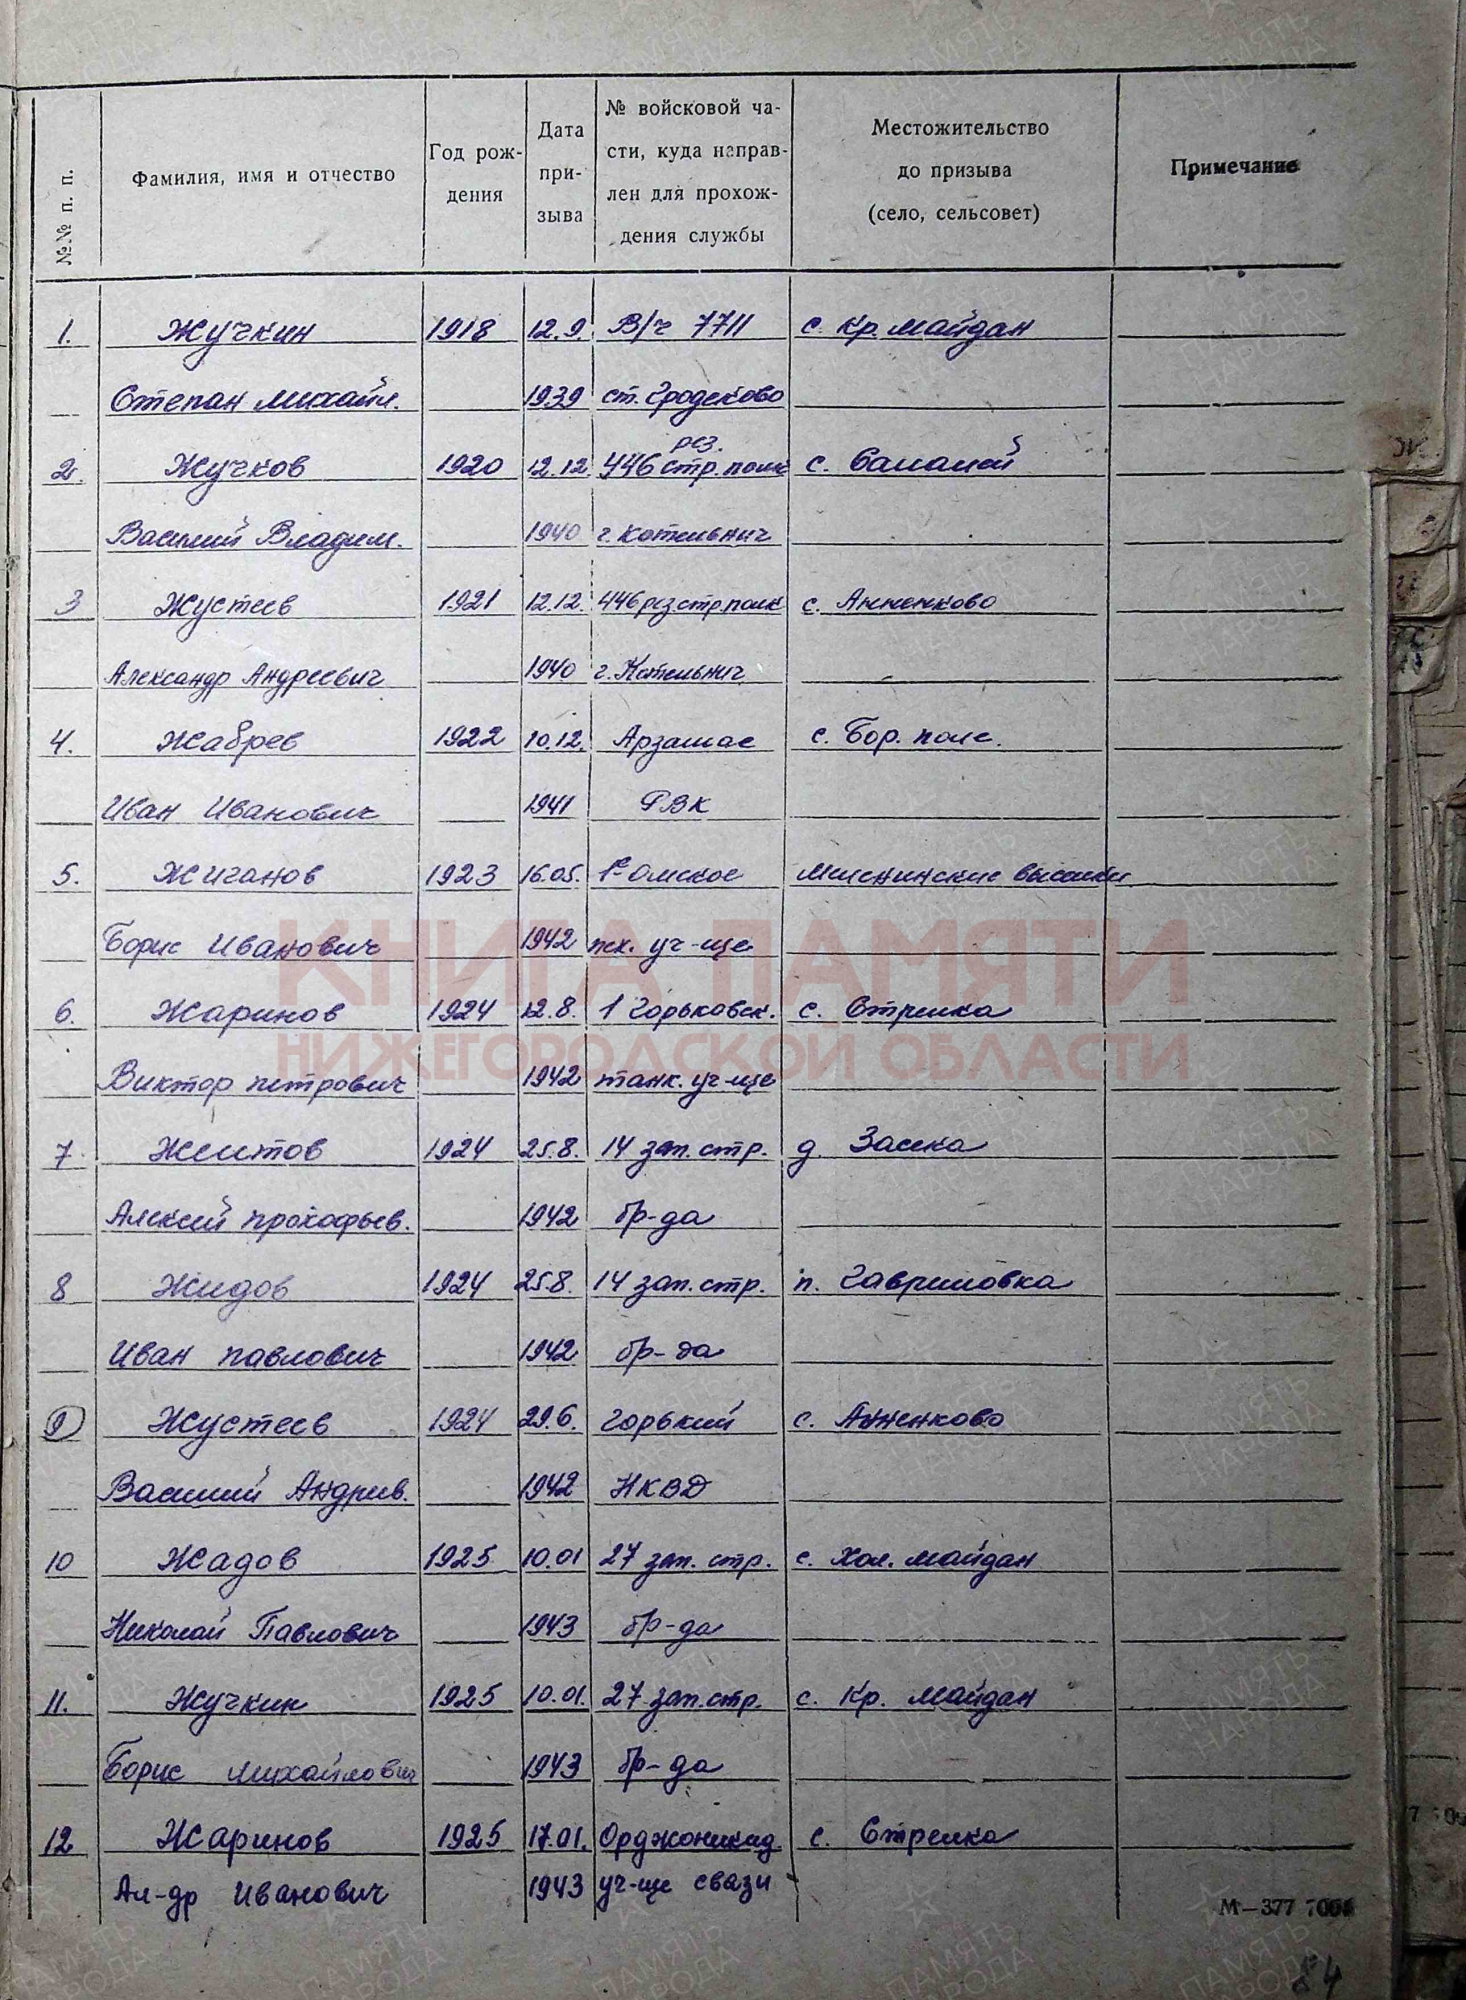 №№ п. п.
Фамилия, имя и отчество
Год рож-
дения
Дата
при-
зыва
№ войсковой ча-
сти, куда направ-
лен для прохож-
дения службы
Местожительство
до призыва
(село, сельсовет)
Примечание
1. Жучкин 1918 12.9. В/ч 7711 с. Кр. Майдан
Степан Михайл. 1939 ст. Гродеково
рез.
2. Жучков 1920 12.12. 446 стр. полк с.
Василий Владим. 1940 г. Котельнич
3 Жустеев 1921 12.12. 446 рез стр. полк с. Анненково
Александр Андреевич 1940 г. Котельнич
4. Жабрев 1922 10.12. Арзамас с. Бор. поле.
Иван Иванович 1941 РВК
5. Жиганов 1923 16.05. 1е Омское
Борис Иванович 1942 уч-ще
6. Жаринов 1924 12.8. 1 Горьковск. с. Стрелка
Виктор Петрович 1942 танк. уч-ще
7. 1924 25.8. 14 зап. стр. д. Засека
Алексей Прокофьев. 1942 бр-да
8 Жидов 1924 25.8. 14 зап. стр. п. Гавриловка
Иван Павлович 1942 бр-да
9 Жустеев 1924 29.6. Горький с. Анненково
Василий Андреев. 1942 НКВД
10 Жадов 1925 10.01 27 зап. стр. с. Хол. Майдан
Николай Павлович 1943 бр-да
11. Жучкин 1925 10.01. 27 зап. стр. с. Кр. Майдан
Борис Михайлович 1943 бр-да
12 Жаринов 1925 17.01. Орджоникид. с. Стрелка
Ал-др Иванович 1943 уч-ще связи
КНИГА ПАМЯТИ
НИЖЕГОРОДСКОЙ ОБЛАСТИ
М—377
84